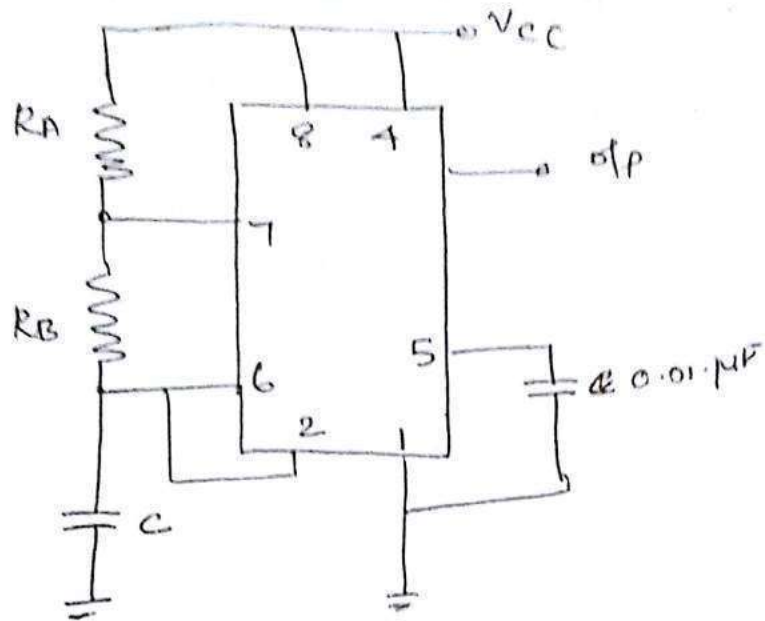 VCC
RA
8 4
o/p
7
RB
5
0.01 µF
6
2
1
C